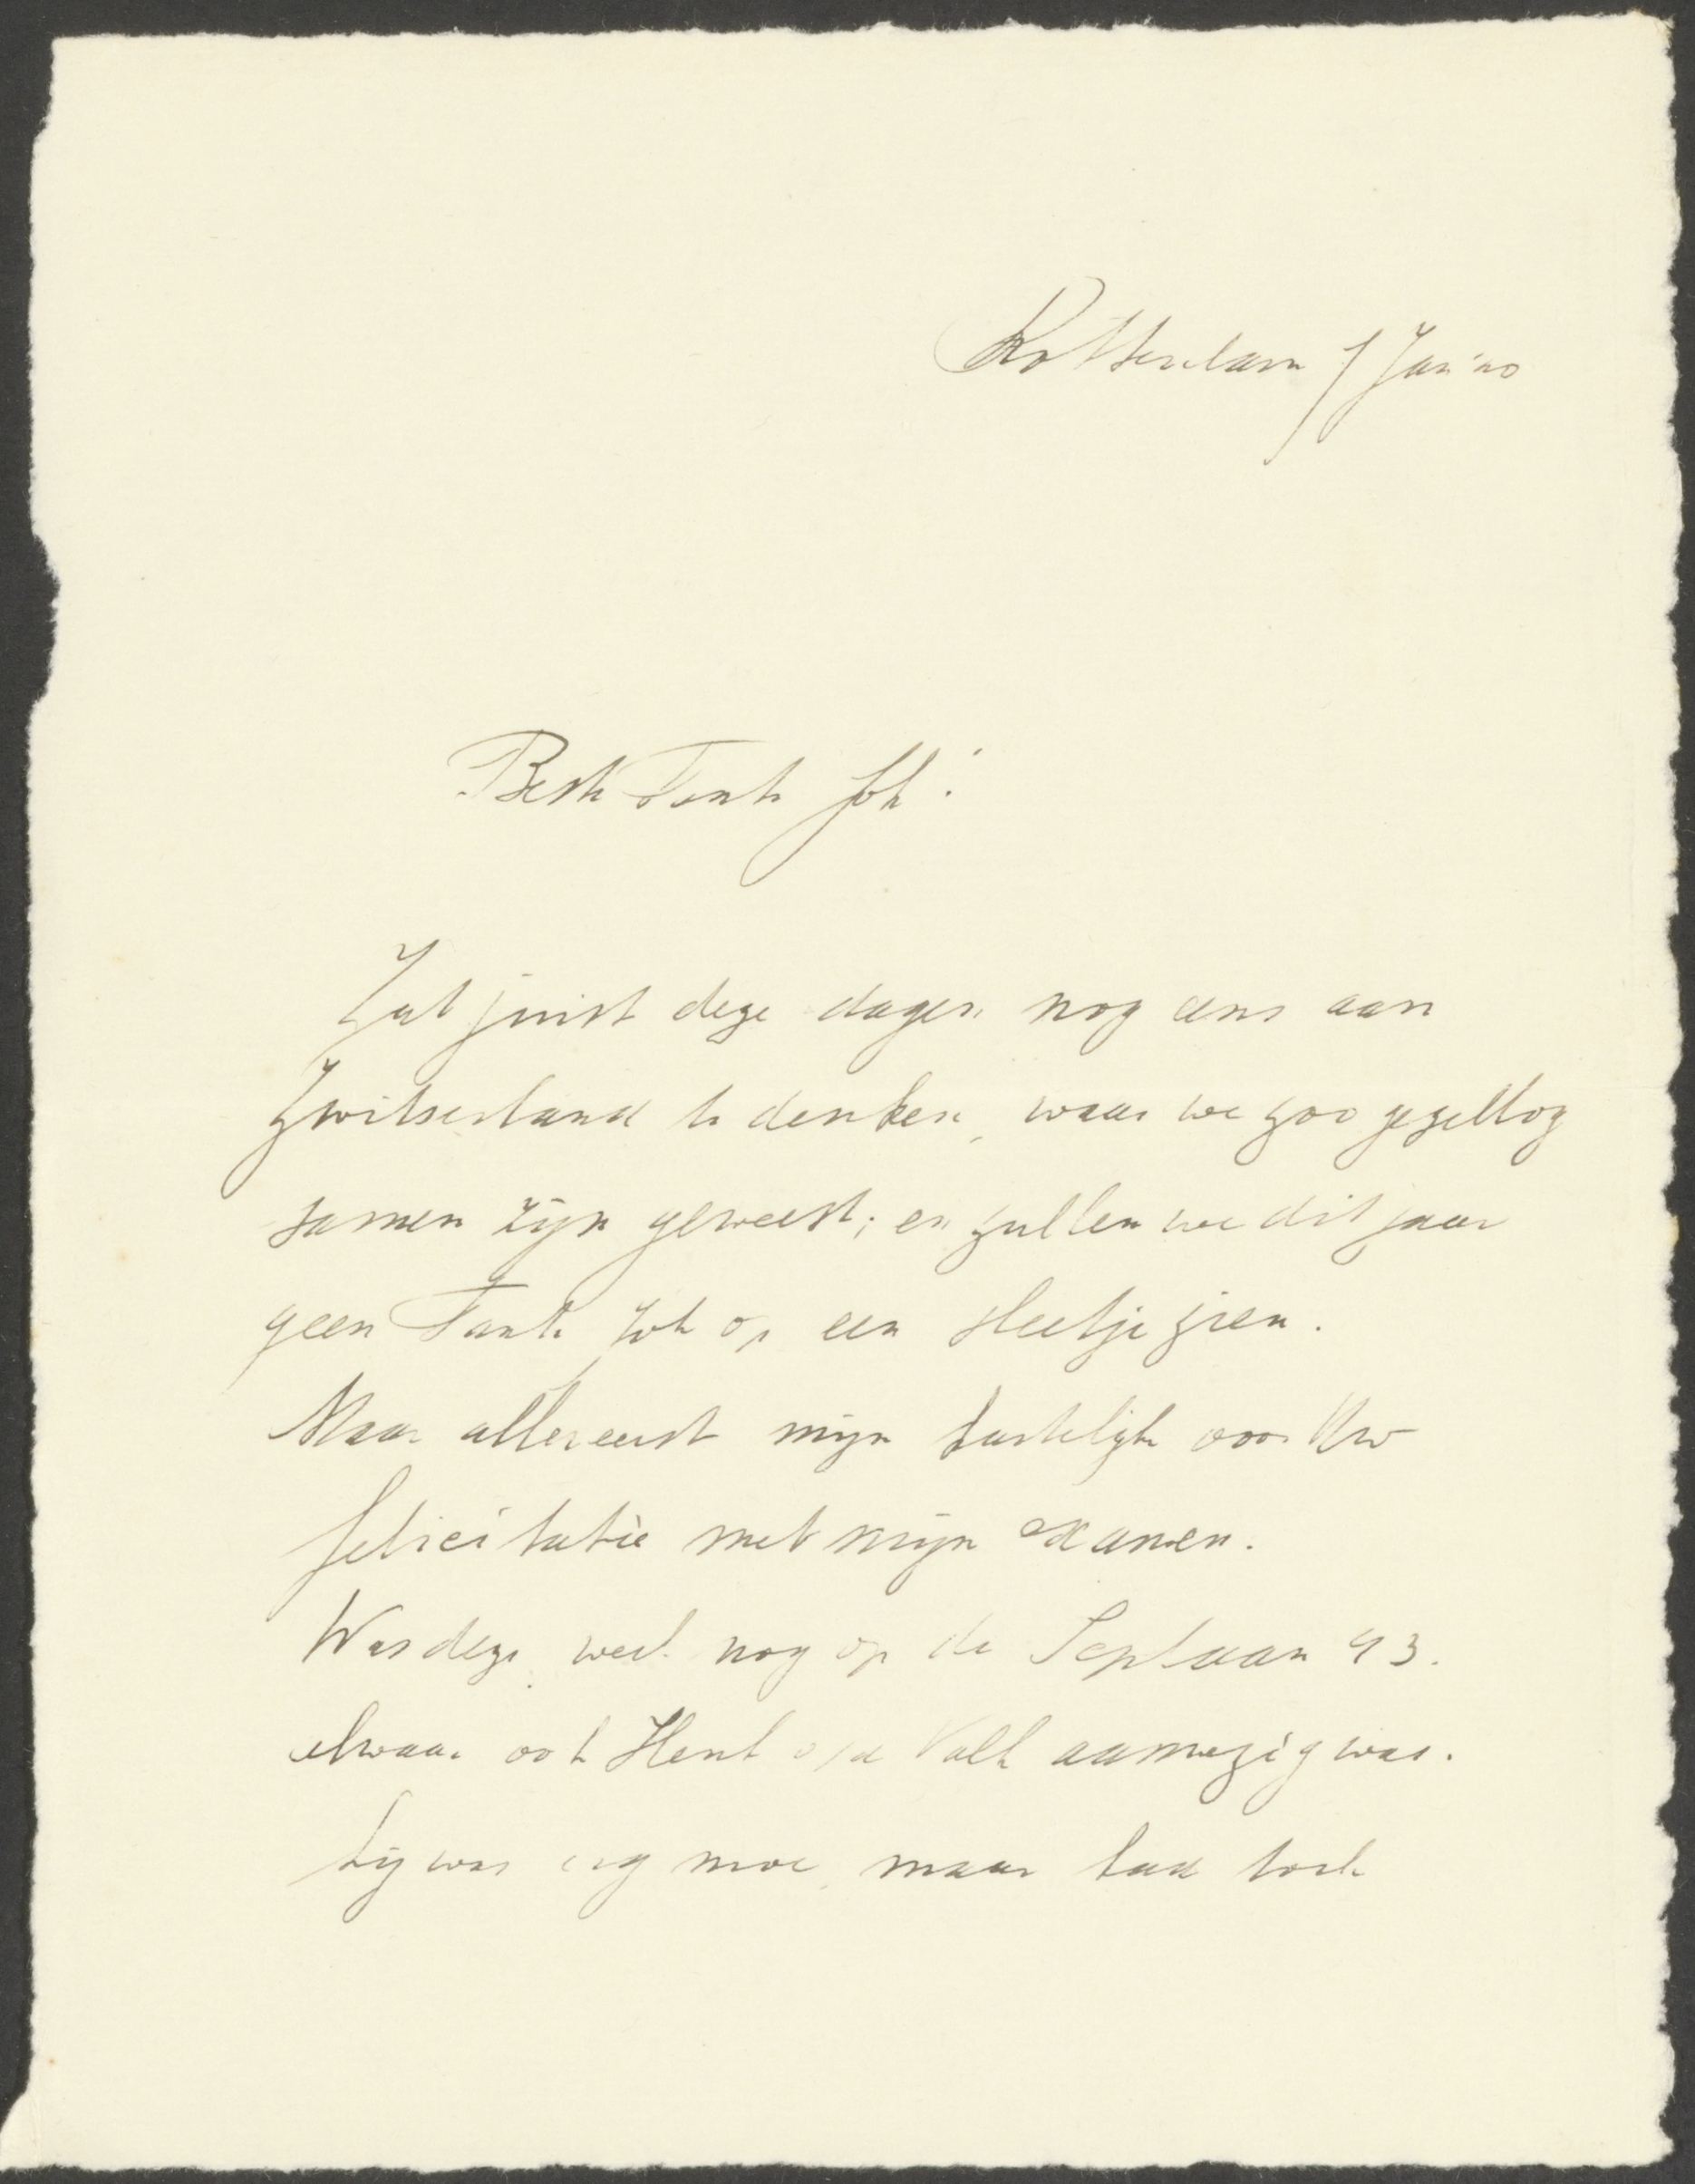 Rotterdam 1 Jan '40
Beste Tante Joh!
Zat juist deze dagen nog eens aan
Zwitserland te denken, waar we zoo gezellig
samen zijn geweest; en zullen we dit jaar
geen Tante Joh op een sleetje zien.
Maar allereerst mijn hartelijke voor Uw
felicitatie met mijn examen.
Was deze week nog op de Seplaan 93.
alwaar ook Henk v/d Valk aanwezig was.
Hij was erg moe, maar had toch